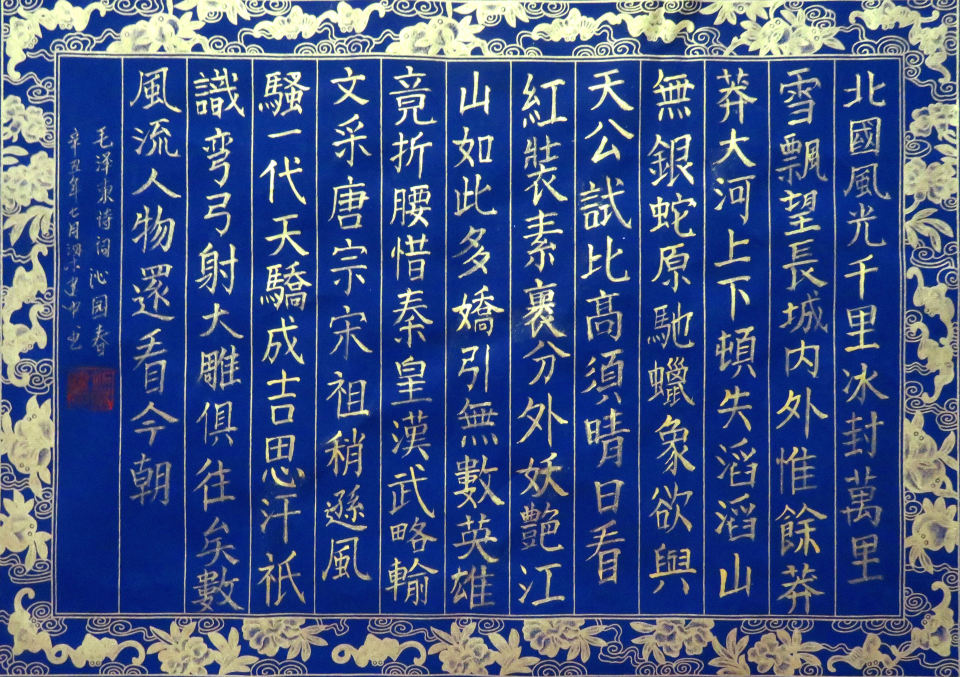 北國風光千里冰封萬里
雪飄望長城内外惟餘莽
莽大河上下頓失滔滔山
無銀蛇原馳蠟象欲與
天公試比高須晴日看
紅裝素裹分外妖艷江
山如此多嬌引無數英雄
竟折腰惜秦皇漢武略輸
文采唐宗宋祖稍遜風
騷一代天驕成吉思汗祇
識彎弓射大雕俱往矣數
風流人物還看今朝
毛泽東诗词沁园春
辛丑年七月梁建中书